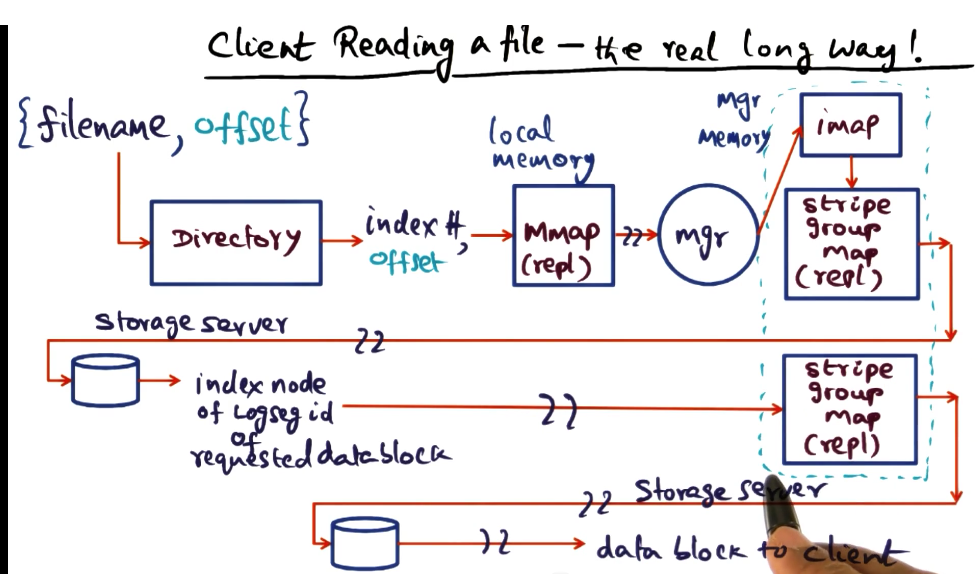 Client Reading a file - the real long way!
{filename, offset}
Directory
index #,
offset
local
memory
Mmap
(repl)
mgr
mgr
memory
imap
stripe
group
map
(repl)
Storage server
index node
of Logseg id
of
requested data block
stripe
group
map
(repl)
Storage server
data block to client